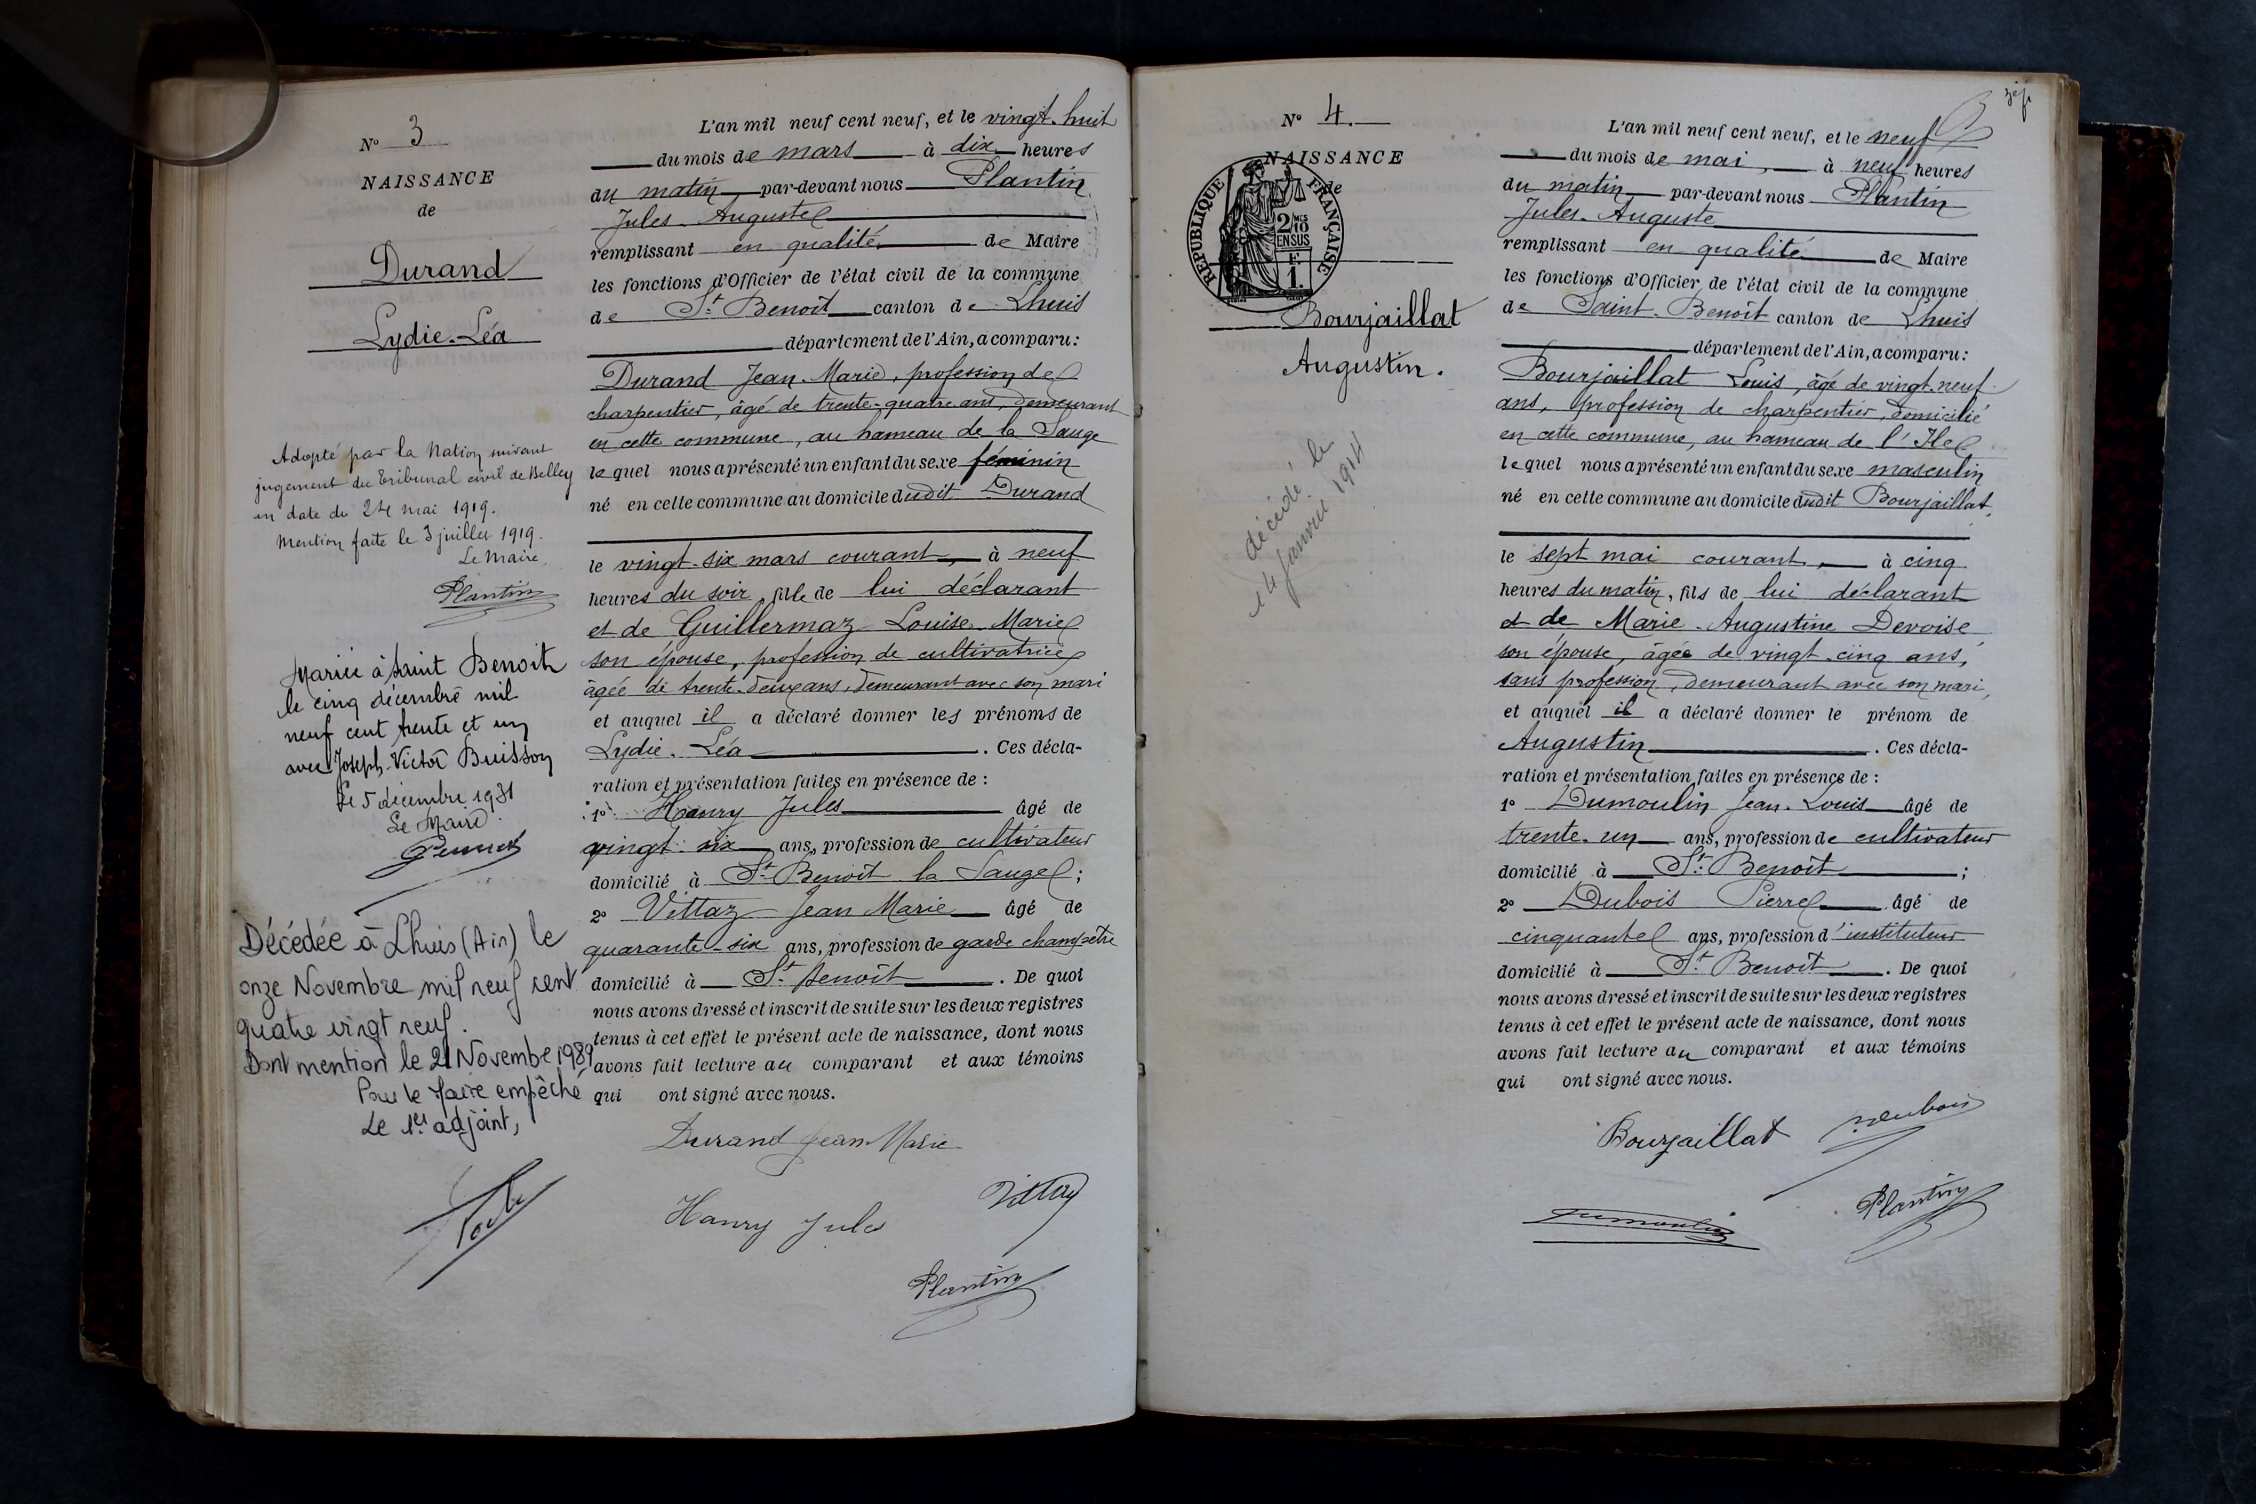 N° 3
NAISSANCE
de
Durand
Lydie-Léa
Adopté par la Nation suivant
jugement du Tribunal civil de Belley
en date du 24 mai 1919.
Mention faite le 3 juillet 1919.
Le Maire,
Plantin
Mariée à Saint Benoit
le cinq décembre mil
neuf cent trente et un
avec Joseph-Victor Buisson
Le 5 décembre 1931
Le Maire
Décédée à Lhuis (Ain) le
onze Novembre mil neuf cent
quatre vingt neuf.
Dont mention le 21 Novembre 1989
Pour le Maire empêché
Le 1er adjoint,
L'an mil neuf cent neuf, et le vingt-huit
du mois de mars à dix heures
du matin par-devant nous Plantin
Jules-Auguste
remplissant en qualité de Maire
les fonctions d'Officier de l'état civil de la commune
de St Benoît canton de Lhuis
département de l'Ain, a comparu:
Durand Jean-Marie, profession de
charpentier, âgé de trente-quatre ans, demeurant
en cette commune, au hameau de la Sauge
lequel nous a présenté un enfant du sexe féminin
né en cette commune au domicile dudit Durand
le vingt-six mars courant, à neuf
heures du soir, fille de lui déclarant
et de Guillermaz Louise-Marie
son épouse, profession de cultivatrice
âgée de trente-deux ans, demeurant avec son mari
et auquel il a déclaré donner les prénoms de
Lydie-Léa. Ces décla-
ration et présentation faites en présence de :
1° Hanry Jules âgé de
vingt-six ans, profession de cultivateur
domicilié à St Benoît la Sauge ;
2° Vittaz Jean Marie âgé de
quarante-six ans, profession de garde champêtre
domicilié à St Benoît. De quoi
nous avons dressé et inscrit de suite sur les deux registres
tenus à cet effet le présent acte de naissance, dont nous
avons fait lecture au comparant et aux témoins
qui ont signé avec nous.
Durand Jean-Marie
Hanry Jules
Vittaz
Plantin
N° 4.
NAISSANCE
de
RÉPUBLIQUE FRANÇAISE
2/10 MES
EN SUS
F.
1.
Bourjaillat
Augustin.
décédé le
14 janvier 1914
L'an mil neuf cent neuf, et le neuf
du mois de mai, à neuf heures
du matin par-devant nous Plantin
Jules-Auguste
remplissant en qualité de Maire
les fonctions d'Officier de l'état civil de la commune
de Saint-Benoît canton de Lhuis
département de l'Ain, a comparu:
Bourjaillat Louis, âgé de vingt-neuf
ans, profession de charpentier, domicilié
en cette commune, au hameau de l'Ile
lequel nous a présenté un enfant du sexe masculin
né en cette commune au domicile dudit Bourjaillat,
le sept mai courant, à cinq
heures du matin, fils de lui déclarant
et de Marie-Augustine Devoise
son épouse, âgée de vingt-cinq ans,
sans profession, demeurant avec son mari,
et auquel il a déclaré donner le prénom de
Augustin. Ces décla-
ration et présentation faites en présence de :
1° Dumoulin Jean-Louis âgé de
trente-un ans, profession de cultivateur
domicilié à St Benoît ;
2° Dubois Pierre âgé de
cinquante ans, profession d'instituteur
domicilié à St Benoît. De quoi
nous avons dressé et inscrit de suite sur les deux registres
tenus à cet effet le présent acte de naissance, dont nous
avons fait lecture au comparant et aux témoins
qui ont signé avec nous.
Bourjaillat
Dubois
Dumoulin
Plantin